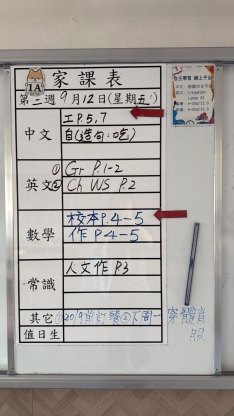 家課表
1A
第二週 9月12日(星期五)
中文
工P.5,7
自(造句:吃)
英文
① Gr P.1-2
② Ch WS P.2
數學
校本P.4-5
作 P.4-5
常識
人文作P.3
其它
值日生
穿體育服
自主學習 網上平台